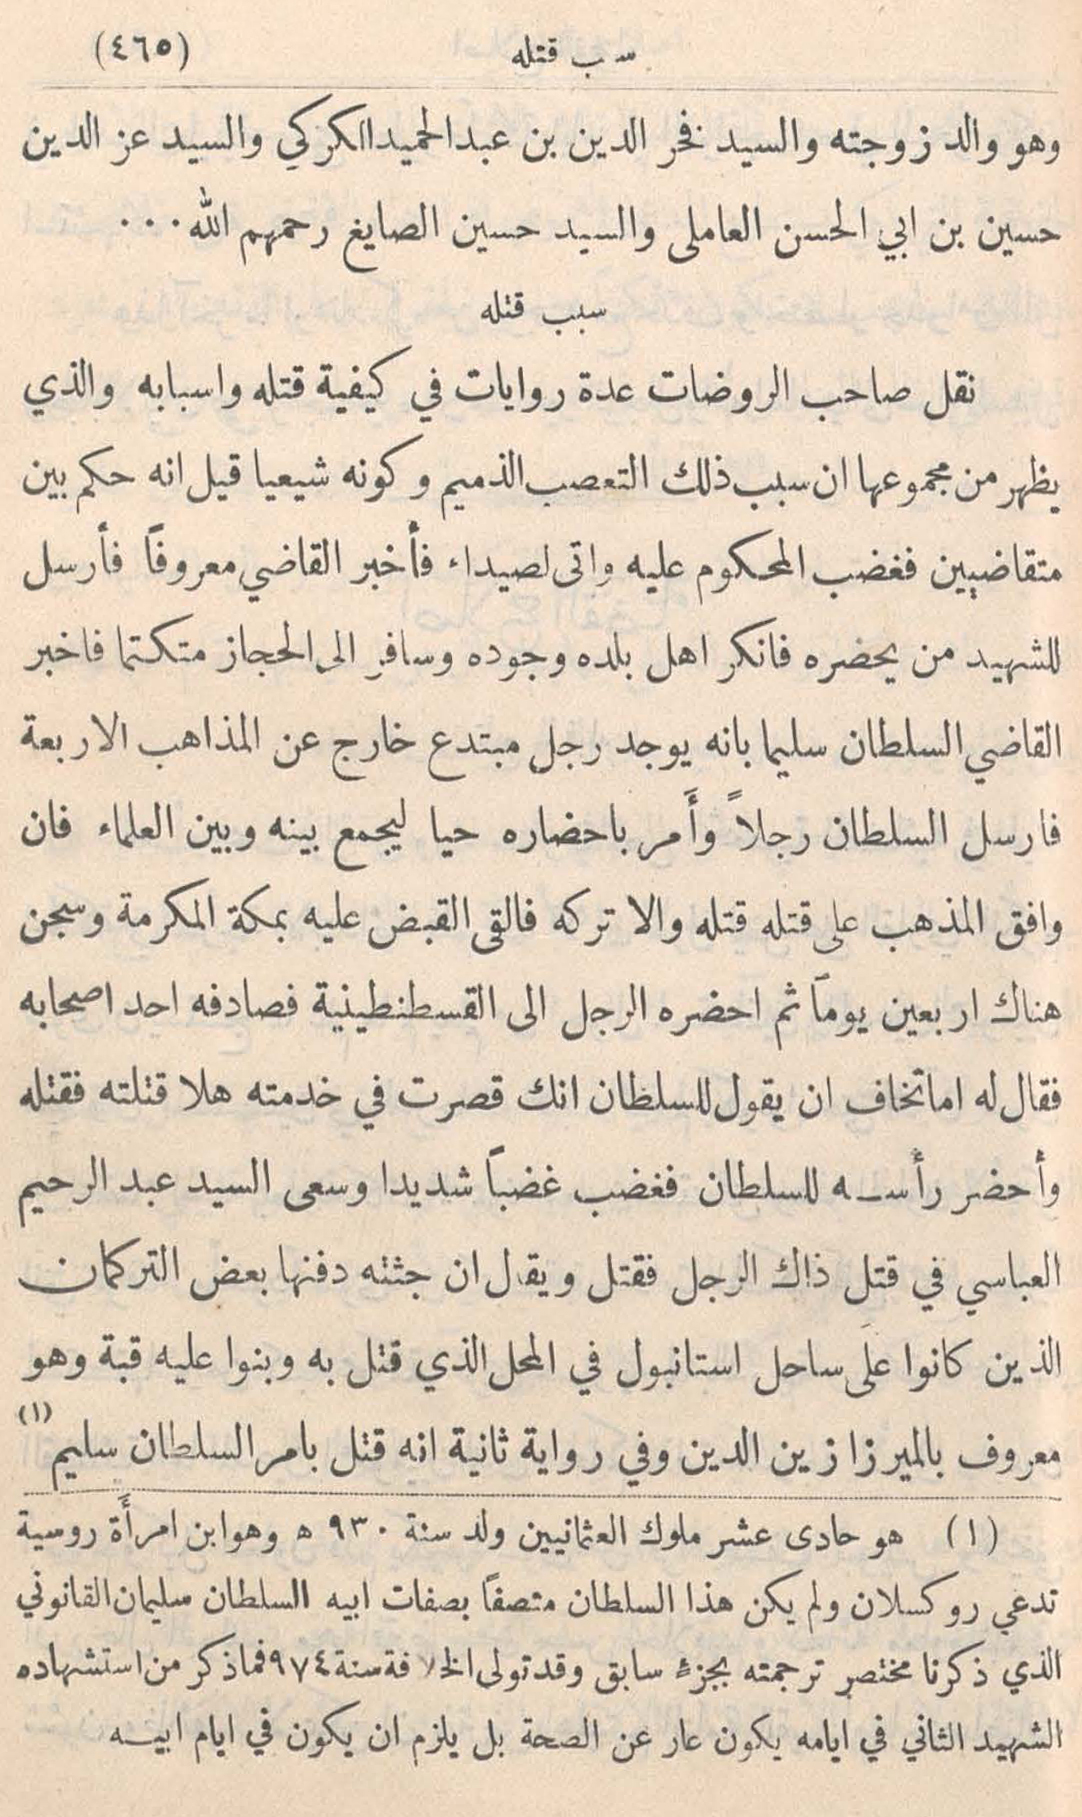 سبب قتله (٤٦٥)
وهو والد زوجته والسيد فخر الدين بن عبد الحميد الكركي والسيد عز الدين
حسين بن ابي الحسن العاملى والسيد حسين الصايغ رحمهم الله ٠٠٠
سبب قتله
نقل صاحب الروضات عدة روايات في كيفية قتله واسبابه والذي
يظهر من مجموعها ان سبب ذلك التعصب الذميم وكونه شيعيا قيل انه حكم بين
متقاضيين فغضب المحكوم عليه واتى لصيداء فأخبر القاضي معروفاً فأرسل
للشهيد من يحضره فانكر اهل بلده وجوده وسافر الى الحجاز متكتما فاخبر
القاضي السلطان سليما بانه يوجد رجل مبتدع خارج عن المذاهب الاربعة
فارسل السلطان رجلاً وأَمر باحضاره حيا ليجمع بينه وبين العلماء فان
وافق المذهب على قتله قتله والا تركه فالقى القبض عليه بمكة المكرمة وسجن
هناك اربعين يوماً ثم احضره الرجل الى القسطنطينية فصادفه احد اصحابه
فقال له اما تخاف ان يقول للسلطان انك قصرت في خدمته هلا قتلته فقتله
وأحضر رأســه للسلطان فغضب غضباً شديدا وسعى السيد عبد الرحيم
العباسي في قتل ذاك الرجل فقتل ويقال ان جثته دفنها بعض التركمان
الذين كانوا على ساحل استانبول في المحل الذي قتل به وبنوا عليه قبة وهو
معروف بالميرزا زين الدين وفي رواية ثانية انه قتل بامر السلطان سليم (١)
(١) هو حادى عشر ملوك العثمانيين ولد سنة ٩٣٠ ه وهو ابن امرأَة روسية
تدعي روكسلان ولم يكن هذا السلطان متصفاً بصفات ابيه السلطان سليمان القانوني
الذي ذكرنا مختصر ترجمته بجزءٍ سابق وقد تولى الخلافة سنة ٩٧٤ فما ذكر من استشهاده
الشهيد الثاني في ايامه يكون عار عن الصحة بل يلزم ان يكون في ايام ابيــه